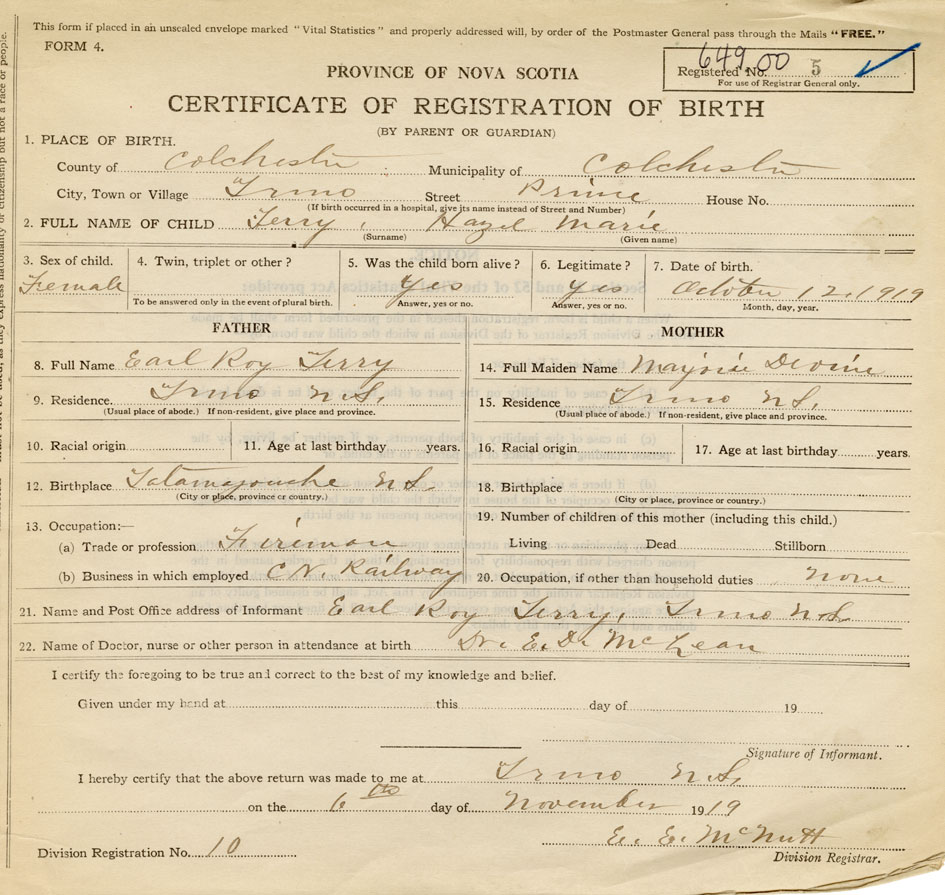 This form if placed in an unsealed envelope marked "Vital Statistics" and properly addressed will, by order of the Postmaster General pass through the Mails "FREE."
FORM 4.
649.00
Registered No. 5
For use of Registrar General only.
PROVINCE OF NOVA SCOTIA
CERTIFICATE OF REGISTRATION OF BIRTH
(BY PARENT OR GUARDIAN)
1. PLACE OF BIRTH.
County of Colchester Municipality of Colchester
City, Town or Village Truro Street Prince House No.
(If birth occurred in a hospital, give its name instead of Street and Number)
2. FULL NAME OF CHILD Terry, Hazel Marie
(Surname) (Given name)
3. Sex of child. 4. Twin, triplet or other? 5. Was the child born alive? 6. Legitimate? 7. Date of birth.
Female yes yes October 12, 1919
To be answered only in the event of plural birth. Answer, yes or no. Answer, yes or no. Month, day, year.
FATHER MOTHER
8. Full Name Earl Roy Terry 14. Full Maiden Name Marjorie Devine
9. Residence. Truro N.S. 15. Residence Truro N.S.
(Usual place of abode.) If non-resident, give place and province. (Usual place of abode.) If non-resident, give place and province.
10. Racial origin 11. Age at last birthday years. 16. Racial origin 17. Age at last birthday years.
12. Birthplace Tatamagouche N.S. 18. Birthplace
(City or place, province or country.) (City or place, province or country.)
13. Occupation:— 19. Number of children of this mother (including this child.)
(a) Trade or profession Fireman Living Dead Stillborn
(b) Business in which employed C.N. Railway 20. Occupation, if other than household duties none
21. Name and Post Office address of Informant Earl Roy Terry, Truro N.S.
22. Name of Doctor, nurse or other person in attendance at birth Dr. E. D. McLean
I certify the foregoing to be true and correct to the best of my knowledge and belief.
Given under my hand at this day of 19
Signature of Informant.
I hereby certify that the above return was made to me at Truro N.S.
on the 6th day of November 1919
E. E. McNutt
Division Registration No. 10 Division Registrar.